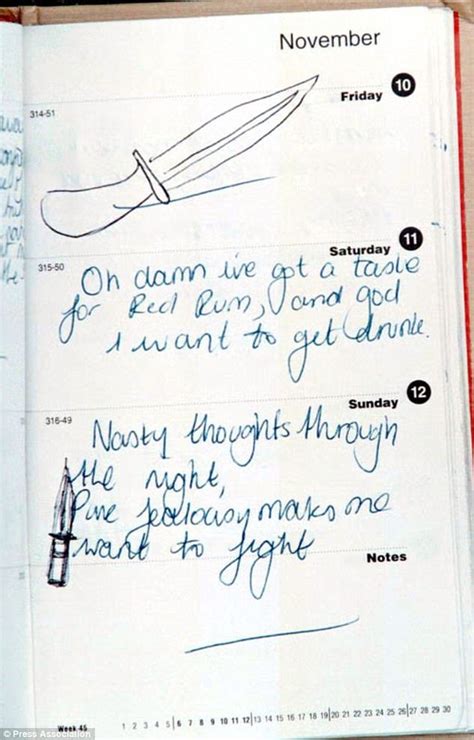 November
Friday 10
314-51
Saturday 11
315-50
Oh damn ive got a taste
for Red Rum, and god
I want to get drunk.
Sunday 12
316-49
Nasty thoughts through
the night,
Pure jealousy makes me
want to fight
Notes
Week 45
1 2 3 4 5 6 7 8 9 10 11 12 13 14 15 16 17 18 19 20 21 22 23 24 25 26 27 28 29 30
© Press Association